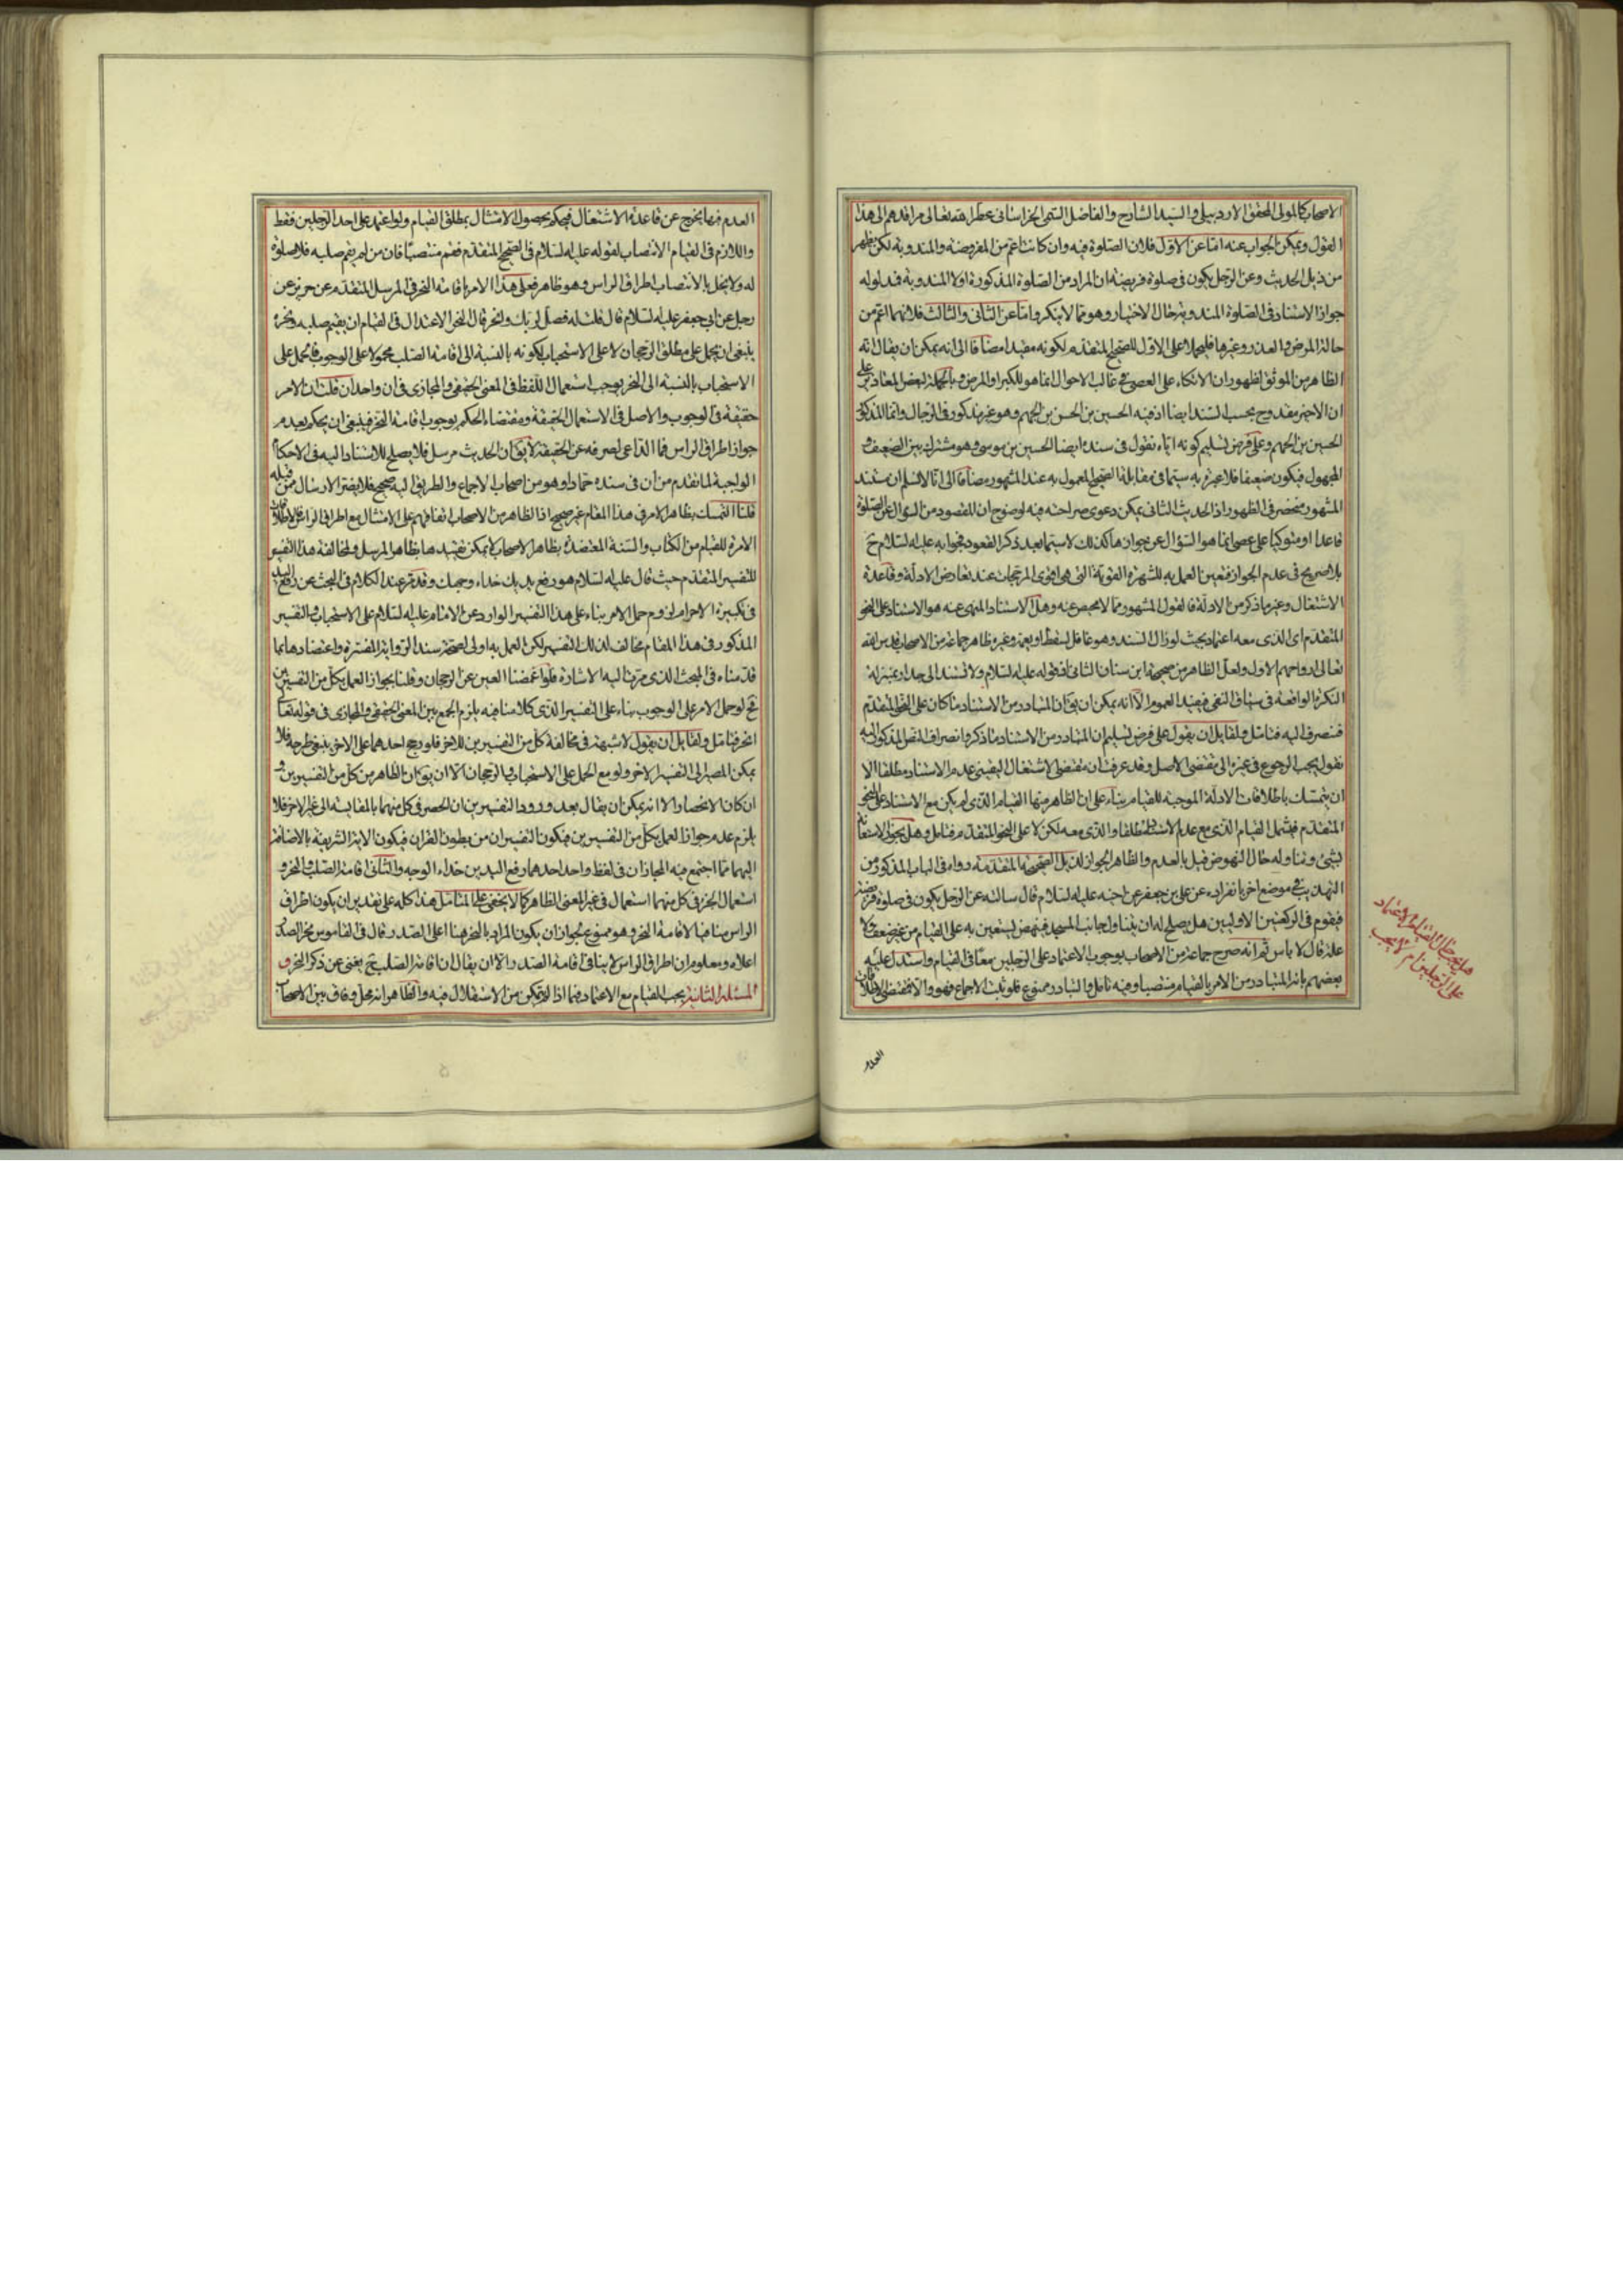 الاصحاب كالمولى المحقق الاردبيلى والسيد الشارح والفاضل التقى الخراسانى عطر الله تعالى مراقدهم الى هذا
القول ويمكن الجواب عنه اما عن الاول فلان الصلوة فيه وان كانت اعم من المفروضة والمندوبة لكن يظهر
من ذيل الحديث وعن الرجل يكون فى صلوة فريضة ان المراد من الصلوة المذكورة اولا المندوبة فمدلوله
جواز الاستناد فى الصلوة المندوبة حال الاختيار وهو مما لا ينكر واما عن الثانى والثالث فلانهما اعم من
حالة المرض والعذر وغيرها فليحملا على الاول للصحيح المتقدم لكونه مقيدا مضافا الى انه يمكن ان يقال انه
الظاهر من الموثق لظهور ان الاتكاء على العصى فى غالب الاحوال انما هو للكبر او المرض وبالجملة لبعض المعاذير على
ان الاخير مقدوح بحسب السند ايضا اذ فيه الحسين بن الحسن بن الجهم وهو غير مذكور فى الرجال وانما المذكور
الحسين بن الجهم وعلى فرض تسليم كونه اياه نقول فى سنده ايضا الحسين بن موسى وهو مشترك بين الضعيف و
المجهول فيكون ضعيفا فلا عبرة به سيما فى مقابلة الصحيح المعمول به عند المشهور مضافا الى انا لا نسلم ان مستند
المشهور منحصر فى الظهور اذ الحديث الثانى يمكن دعوى صراحته فيه لوضوح ان المقصود من السؤال عن الصلوة
قاعدا او متوكيا على عصى انما هو السؤال عن جوازها كذلك لا سيما بعد ذكر القعود فجوابه عليه السلام ح
بلا صريح فى عدم الجواز فتعين العمل به للشهرة القوية التى هى اقوى المرجحات عند تعارض الادلة وقاعدة
الاشتغال وغيرها ذكر من الادلة فالقول المشهور مما لا محيص عنه وهل الاستناد المنهى عنه هو الاستناد على النحو
المتقدم اى الذى معه اعتماد بحيث لو زال السند وهو غافل لسقط او يعمه وغيره ظاهر جماعة من الاصحاب قدس الله
تعالى ارواحهم الاول ولعل الظاهر من صحيحة ابن سنان الثانى لقوله عليه السلام ولا تستند الى جدار عتبار ان
النكرة الواقعة فى سياق النفى يفيد العموم الا انه يمكن ان يق ان المتبادر من الاستناد ما كان على النحو المتقدم
فتصرف اليه فتامل ولقايل ان يقول على فرض تسليم ان المتبادر من الاستناد ما ذكر وانصراف النص المذكور اليه
نقول يجب الرجوع فى غيره الى مقتضى الاصل وقد عرفت ان مقتضى الاشتغال اليقينى عدم الاستناد مطلقا الا
ان يتمسك باطلاقات الادلة الموجبة للقيام بناء على ان الظاهر منها القيام الذى لم يكن مع الاستناد على النحو
المتقدم فيشمل القيام الذى مع عدم الاستناد مطلقا والذى معه لكن لا على النحو المتقدم فتامل وهل يجوز الاستعانة
بشئ وتناوله حال النهوض قيل بالعدم والظاهر الجواز لذيل الصحيحة المتقدمة رواه فى الباب المذكور من
التهذيب فى موضع اخر بانفراده عن على بن جعفر عن اخيه عليه السلام قال سالته عن الرجل يكون فى صلوة فريضة
فيقوم فى الركعتين الاوليين هل يصلح له ان يتناول جانب المسجد فينهض يستعين به على القيام من غير ضعف ولا
علة قال لا باس ثم انه صرح جماعة من الاصحاب بوجوب الاعتماد على الرجلين معا فى القيام واستدل عليه
بعضهم بانه المتبادر من الامر بالقيام منتصبا وفيه تامل والتبادر ممنوع فلو ثبت الاجماع فهو والا فمقتضى الاطلاقات
هل يجب حال القيام الاعتماد
على الرجلين ام لا يجب
العدم
العدم فبها يخرج عن قاعدة الاشتغال فيحكم بحصول الامتثال بمطلق القيام ولو اعتمد على احد الرجلين فقط
واللازم فى القيام الانتصاب لقوله عليه السلام فى الصحيح المتقدم فقم منتصبا فان من لم يقم صلبه فلا صلوة
له ولا يخل بالانتصاب اطراق الراس وهو ظاهر فعلى هذا الامر باقامة النحر فى المرسل المتقدم عن حريز عن
رجل عن ابى جعفر عليه السلام قال قلت له فصل لربك وانحر قال النحر الاعتدال فى القيام ان يقيم صلبه ونحره
ينبغى ان يحمل على مطلق الرجحان لا على الاستحباب لكونه بالنسبة الى اقامة الصلب محمولا على الوجوب فالحمل على
الاستحباب بالنسبة الى النحر يوجب استعمال اللفظ فى المعنى الحقيقى والمجازى فى ان واحد ان قلت ان الامر
حقيقة فى الوجوب والاصل فى الاستعمال الحقيقة ومقتضاه الحكم بوجوب اقامة النحر فينبغى ان يحكم بعدم
جواز اطراق الراس فما الداعى لصرفه عن الحقيقة لا يق ان الحديث مرسل فلا يصلح للاستناد اليه فى الاحكام
الواجبة لما تقدم من ان فى سنده حماد او هو من اصحاب الاجماع والطريق اليه صحيح فلا يضر الارسال ممن قبله
قلنا التمسك بظاهر الامر فى هذا المقام غير صحيح اذ الظاهر من الاصحاب اتفاقهم على الامتثال مع اطراق الراس فالاطلاقات
الامرة للقيام من الكتاب والسنة المعتضدة بظاهر الاصحاب لا يمكن تقييدها بظاهر المرسل ولمخالفة هذا التفسير
للتفسير المتقدم حيث قال عليه السلام هو رفع يديك حذاء وجهك وقد مر عند الكلام فى البحث عن رفع اليد
فى تكبيرة الاحرام لزوم حمل الامر بناء على هذا التفسير الوارد عن الامام عليه السلام على الاستحباب والتفسير
المذكور فى هذا المقام مخالف لذلك التفسير لكن العمل به اولى لصحة سند الرواية المفسرة واعتضادها بما
قدمناه فى المبحث الذى مر منا اليه الاشارة فلو اغمضنا العين عن الرجحان وقلنا بجواز العمل بكل من التفسيرين
فح لو حمل الامر على الوجوب بناء على التفسير الذى كلامنا فيه يلزم الجمع بين المعنى الحقيقى والمجازى فى قوله تعالى
انحر فتامل ولقايل ان يقول لا شبهة فى مخالفة كل من التفسيرين للاخر فلو رجح احدهما على الاخر ينبغى طرحه فلا
يمكن المصير الى التفسير الاخر ولو مع الحمل على الاستحباب والرجحان الا ان يق ان الظاهر من كل من التفسيرين و
ان كان الانحصار الا انه يمكن ان يقال بعد ورود التفسيرين ان الحصر فى كل منهما بالمقايسة الى غير الاخر فلا
يلزم عدم جواز العمل بكل من التفسيرين فيكون التفسيران من بطون القران فيكون الاية الشريفة بالاضافة
اليهما مما اجتمع فيه المجازان فى لفظ واحد احدهما رفع اليدين حذاء الوجه والثانى اقامة الصلب والنحر و
استعمال النحر فى كل منهما استعمال فى غير المعنى الظاهر كما لا يخفى على المتامل هذا كله على تقدير ان يكون اطراق
الراس منافيا لاقامة النحر وهو ممنوع لجواز ان يكون المراد بالنحر هنا اعلى الصدر قال فى القاموس نحر الصدر
اعلاه ومعلوم ان اطراق الراس لا ينافى اقامة الصدر الا ان يقال ان اقامة الصلب ح يغنى عن ذكر النحر ف
المسئلة الثانية يجب القيام مع الاعتماد فيما اذا لم يتمكن من الاستقلال فيه والظاهر انه محل وفاق بين الاصحاب